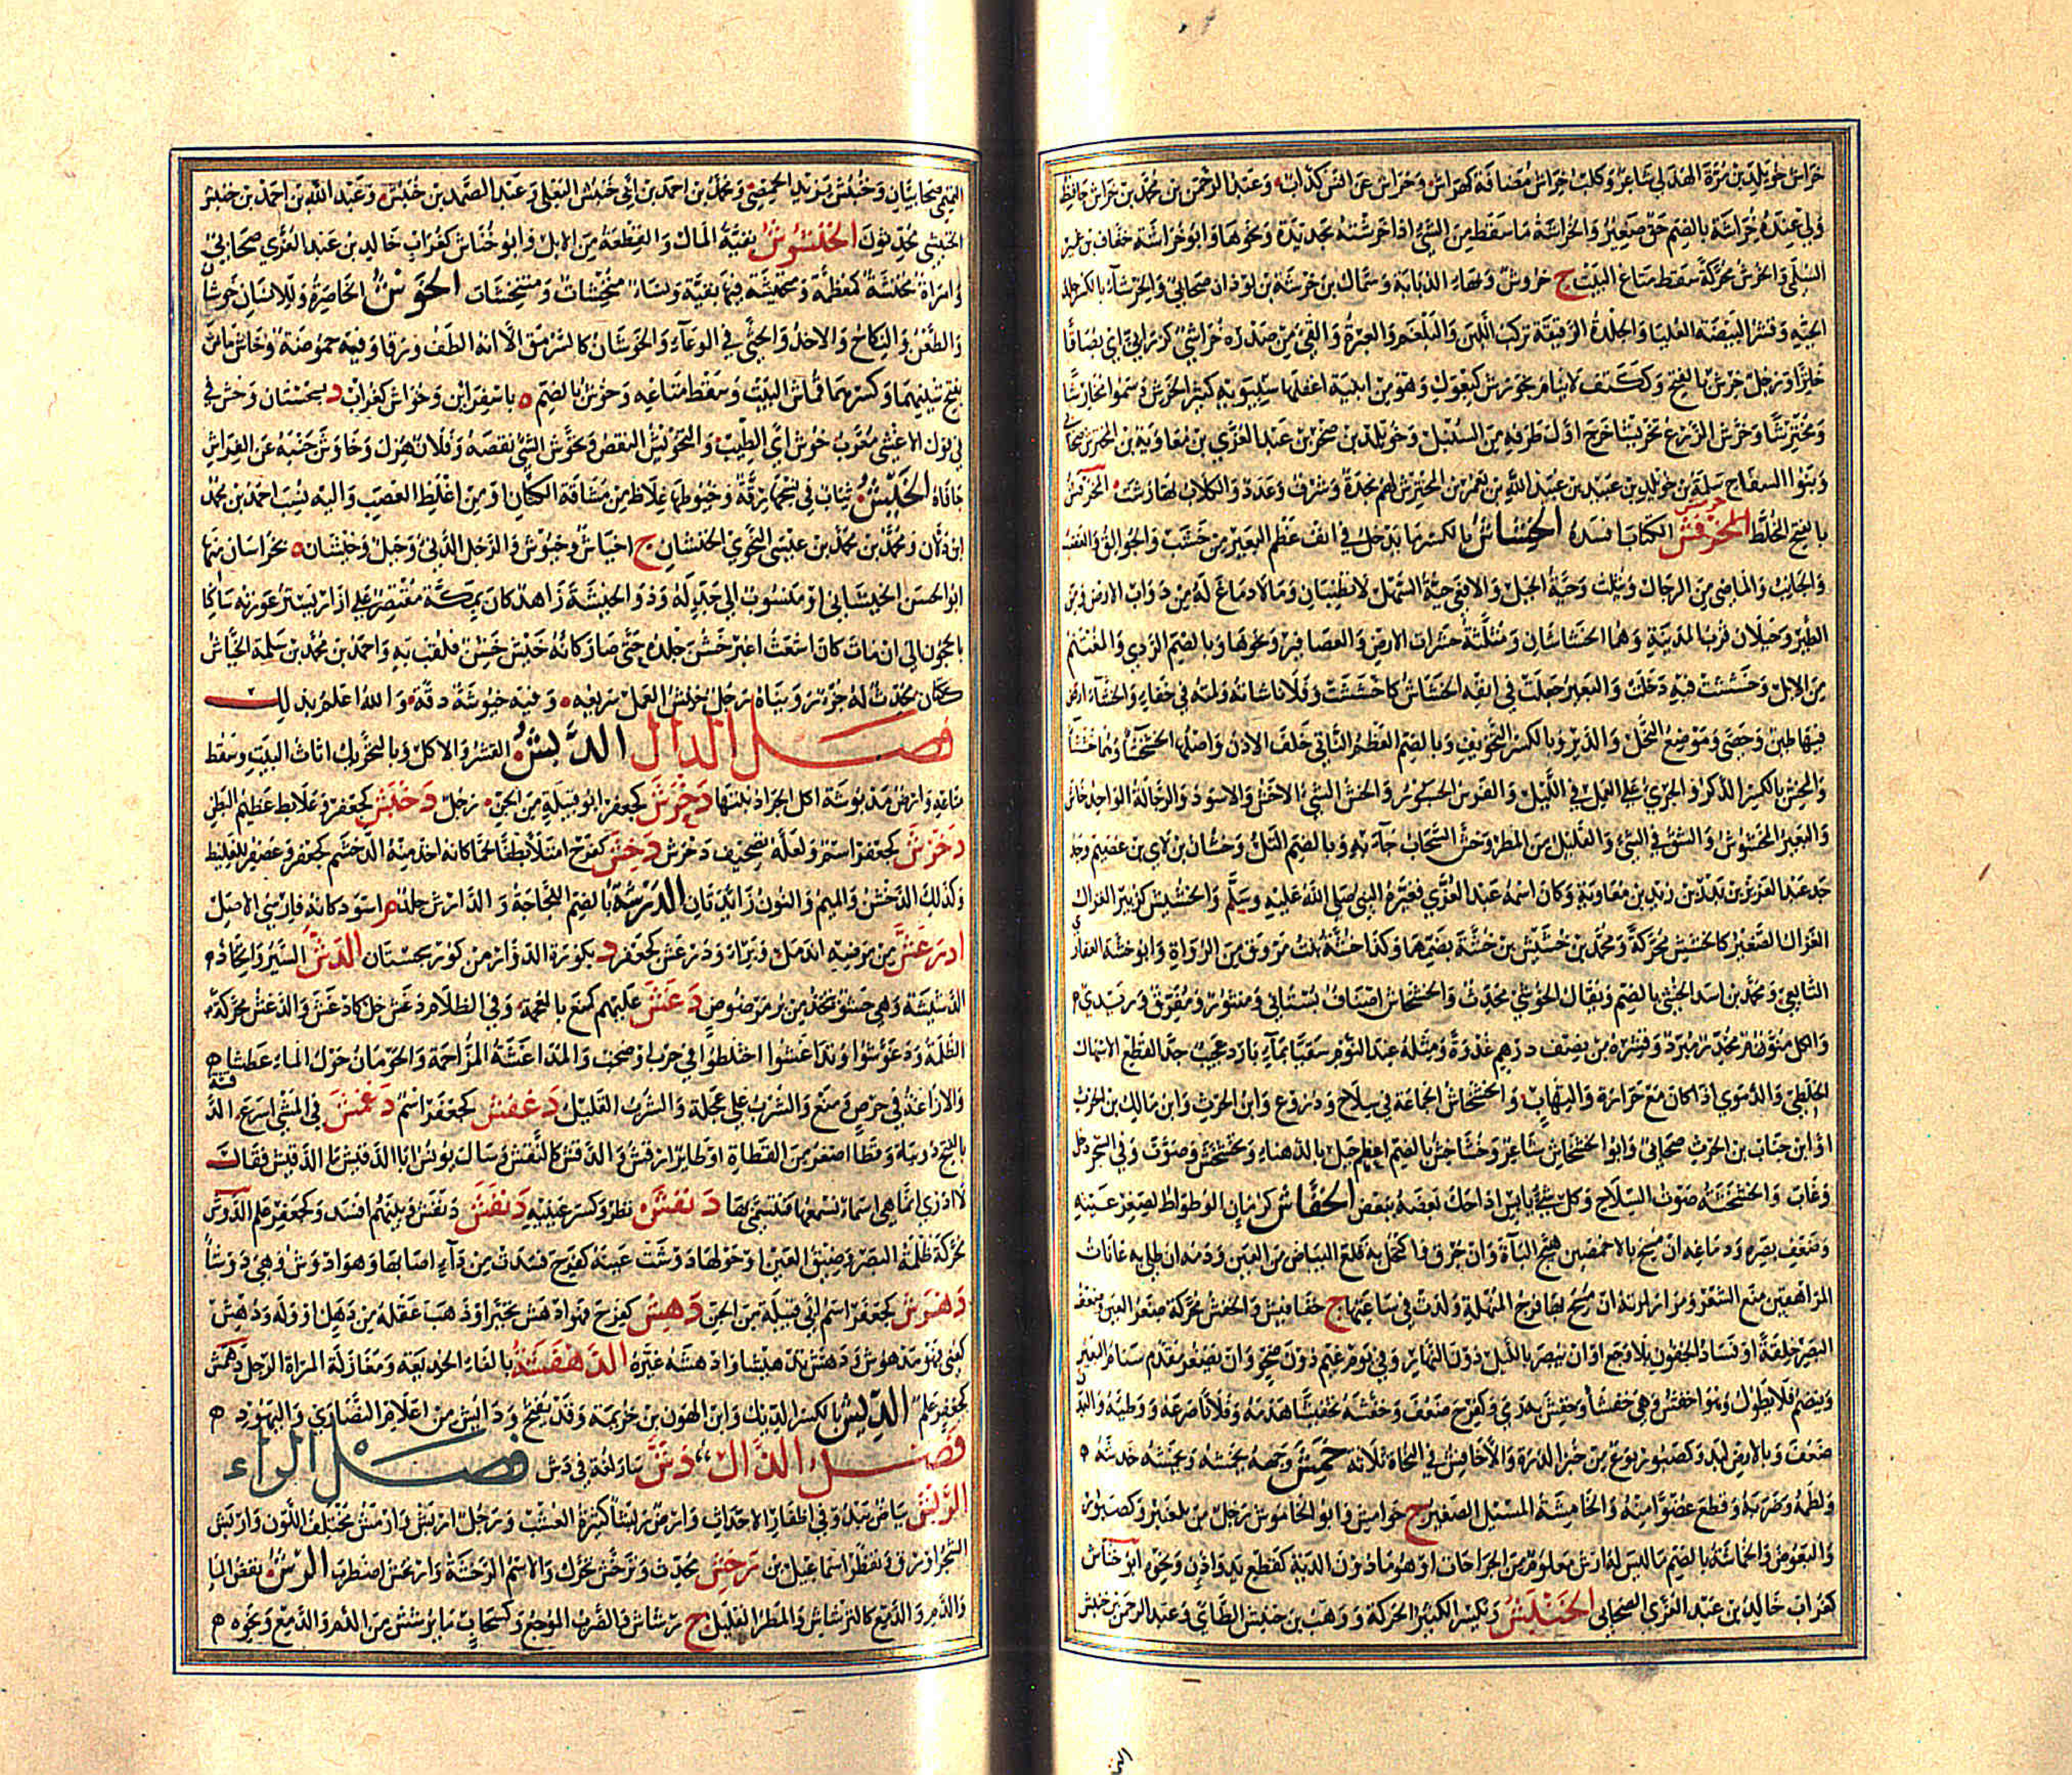 خراش خويلد بن مرة الهذلي شاعر وكلب خراش مضافة كهراش وخراش عن انس كذاب وعبد الرحمن بن محمد بن خراش حافظ
ولي عنده خراشة بالضم حق صغير والخراشة ما سقط من الشيء اذا خرشته بحديدة ونحوها وابو خراشة خفاف بن عمير
السلمي والخرش محركة سقط متاع البيت ج خروش وبهاء الذبابة وسماك بن خرشة بن لوذان صحابي والخرشاء بالكسر جلد
الحية وقشر البيضة العليا والجلدة الرقيقة تركب اللبن والبلغم والغبرة والقى من صدره خراشي كزرابي اي بصاقا
خاثرا ورجل خرش بالفتح وككتف لا ينام وهو من ابنية اغفلها سيبويه كثير الخرش وسموا مخارشا
ومخترشا وخرش الزرع تخريشا خرج اول طرفه من السنبل وخويلد بن صخر بن عبد العزى بن معاوية بن المخترش صحابي
وبنوا السفاح سلمة بن خويلد بن عبيد بن عبد الله بن يعمر بن المخترش لهم نجدة وشرف وعدد والكلاب تهارشت
بالفتح المخلط الكتاب افسده الخشاش بالكسر ما يدخل في انف عظم البعير من خشب والجوالق والغضب
والجانب والماضي من الرجال ويثلث وحية الجبل والافعى حية السهل لا تطنيان وما لا دماغ له من دواب الارض ومن
الطير وجبلان قرب المدينة وهما الخشاشان ومثلثة حشرات الارض والعصافير ونحوها وبالضم الردي والمغتلم
من الابل وخششت فيه دخلت والبعير جعلت في انفه الخشاش كاخششت وفلانا شنأته ولمته في خفاء والخشاء ارض
فيها طين وحصى وموضع النحل والدبر وبالكسر التخويف وبالضم العظم الناتي خلف الاذن واصلها الخششاء وهما خششاوان
والمخش بالكسر الذكر والجري على العمل في الليل والفرس الجسور والخش الشيء الاخشن والاسود والرجالة الواحد خاش
والبعير المخشوش والشق في الشيء والقليل من المطر وخش السحاب جاء به وبالضم التل وخشان بن لاي بن عصيم وجد
جد عبد العزيز بن بدر بن زيد بن معاوية وكان اسمه عبد العزى فغيره النبي صلى الله عليه وسلم والخشيش كزبير الغزال
الغزال الصغير كالخشش محركة ومحمد بن خشيش بن خشة بضمهما وكذا خشة بنت مرزوق من الرواة وابو خشة الغفاري
التابعي ومحمد بن اسد الخشي بالضم ويقال الخوشي محدث والخشخاش اصناف بستاني ومنثور ومقرن وزبدي
والكل منوم مخدر مبرد وقشره من نصف درهم غدوة ومثله عند النوم سقيا بماء بارد عجيب جدا لقطع الاسهال
الخلطي والدموي اذا كان مع حرارة والتهاب والخشخاش الجماعة في سلاح ودروع وابن الحرث وابن مالك بن الحرث
او ابن جناب بن الحرث صحابي وابو الخشخاش شاعر وخشاخش بالضم اعظم جبل بالدهناء وتخشخش وصوت وفي الشجر دخل
وغاب والخشخشة صوت السلاح وكل شيء يابس اذا حك بعضه ببعض الخفاش كرمان الوطواط لصغر عينيه
وضعف بصره ودماغه ان مسح بالاخمصين هيج الباءة وان حرق واكتحل به قلع البياض من العين ودمه ان طلي به عانات
المراهقين منع الشعر ومرارته ان مسح بها فرج المنهكة ولدت في ساعتها ج خفافيش والخفش محركة صغر العين وضعف
البصر خلقة او فساد الجفون بلا وجع او ان يبصر بالليل دون النهار وفي يوم غيم دون صحو وان يصغر مقدم سنام البعير
وينضم فلا يطول وهو اخفش وهي خفشاء وخفش به رمى وكفرح ضعف وخفشه تخفيشا هدمه وفلانا صرعه ووطئه والبدن
ضعف وبالارض لبد وكصبور نوع من خبز الذرة والاخافش في النحاة ثلاثة خمش وجهه يخمشه ويخمشه خدشه
ولطمه وضربه وقطع عضوا منه والخامشة المسيل الصغير ج خوامش وابو الخاموش رجل من بلعنبر وكصبور
والبعوض والخماشة بالضم ما ليس له ارش معلوم من الجراحات او هو ما دون الدية كقطع يد او اذن ونحوه ابو خناش
كغراب خالد بن عبد العزى الصحابي الخنبش ويكسر الكثير الحركة ووهب بن خنبش الطائي وعبد الرحمن بن خنبش
التميمي صحابيان وخنبش بن يزيد الحمصي ومحمد بن احمد بن ابي خنبش البعلي وعبد الصمد بن خنبش وعبد الله بن احمد بن خنبش
الخنبشي محدثون الخنشوش بقية المال والقطعة من الابل وابو خناش كغراب خالد بن عبد العزى صحابي
وامراة مخنشة كمعظمة ومتخنشة فيها بقية ونساء مخنشات ومتخنشات الخوش الخاصرة وللانسان خوشان
والطعن والنكاح والاخذ والحثي في الوعاء والخوشان كالسرمق الا انه الطف ورقا وفيه حموضة وخاش ماش
بفتح شينهما وكسرهما قماش البيت وسقط متاعه وخوش بالضم ة باسفراين وخواش كغراب د بسجستان وخش في
في قول الاعشى معرب خوش اي الطيب والتخويش النقص وتخوش الشيء نقصه وفلان هزل وخاوش جنبه عن الفراش
جافاه الخيش ثياب في نسجها رقة وخيوطها غلاظ من مشاقة الكتان او من اغلظ العصب واليه نسب احمد بن محمد
ابن دلان ومحمد بن محمد بن عيسى النحوي الخيشيان ج اخياش وخيوش والرجل الدني وجبل وخيشان ة بخراسان منها
ابو الحسن الخيشاني او منسوب الى جد له وذو الخيشة زاهد كان بمكة مقتصر على ازار يستر عورته ساكنا
بالحجون الى ان مات كان اشعث اغبر خشن جلده حتى صار كانه خيش خشن فلقب به واحمد بن محمد بن سلمة الخياش
ككتان محدث له جزء رويناه ورجل خيش العمل سريعه وفيه خيوشة دقة والله اعلم بذلك
فصل الدال الدبش القشر والاكل وبالتحريك اثاث البيت وسقط
متاعه وارض مدبوشة اكل الجراد نبتها دخرش كجعفر ابو قبيلة من الجن رجل دخبش كجعفر وعلابط عظيم البطن
دخرش كجعفر اسم ولعله تصحيف دخرش دخش كفرح امتلا بطنا لحما كانه اخذ منه الدخشم كجعفر وعصفر للغليظ
وكذلك الدخشن والميم والنون زائدتان الدرشة بالضم اللجاجة والدارش جلد م اسود كانه فارسي الاصل
ادرغش من مرضه اندمل وبرا ودرغش كجعفر د بكورة الدوار من كور سجستان الدش السير واتخاذ
الدشيشة وهي حسو تتخذ من بر مرضوض دعش عليهم كمنع بالعجمة وفي الظلام دغش دخل كادغش والدغش محركة
الظلمة ودغوشوا وتداغشوا اختلطوا في حرب او صخب والمداغشة المزاحمة والحومان حول الماء عطشا
والاراغة في حرص ومنع والشرب على عجلة والشرب القليل دغفش كجعفر اسم دغمش في المشي اسرع
بالفتح دويبة رقطا اصغر من القطاة او طائر ارقش والدقش كالنقش وسال يونس ابا الدقيش ما الدقيش فقال
لا ادري انما هي اسماء نسمعها فنتسمى بها دنفش نظر وكسر عينيه دنقش ودنفش وبينهم افسد وكجعفر علم الدوش
محركة ظلمة البصر وضيق العين او حولها دوشت عينه كفرح فسدت من داء اصابها وهو ادوش وهي دوشاء
دهرش كجعفر اسم ابي قبيلة من الجن دهش كفرح فهو ادهش تحير او ذهب عقله من ذهل او وله ودهش
كعني فهو مدهوش ودهش تدهيشا وادهشه غيره الدهفشة بالفاء الخديعة ومغازلة المراة الرجل دهمش
كجعفر علم الديش بالكسر الديك وابن الهون بن خزيمة وقد يفتح ودايش من اعلام النصارى واليهود
فصل الذال ذش سار لغة في دش فصل الراء
الربش بياض يبدو في اظفار الاحداث وارض ربشاء كثيرة العشب ورجل اربش وارمش مختلف اللون واربش
الشجر اورق وتفطر اسماعيل بن رحش محدث وترخش تحرك والاسم الرخشة وارتخش اضطرب الرش نفض الماء
والدم والدمع كالترشاش والمطر القليل ج رشاش والضرب الموجع وكسحاب ما ترشش من الدم والدمع ونحوه